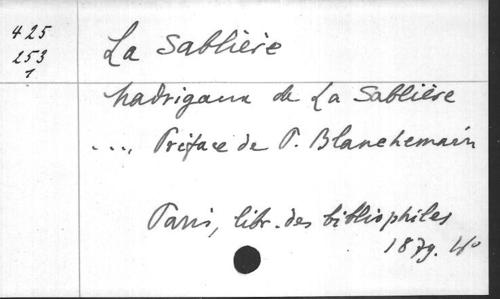 425
253
1
La Sablière
Madrigaux de La Sablière
..., Préface de P. Blanchemain
Paris, libr. des bibliophiles
1879. 4º